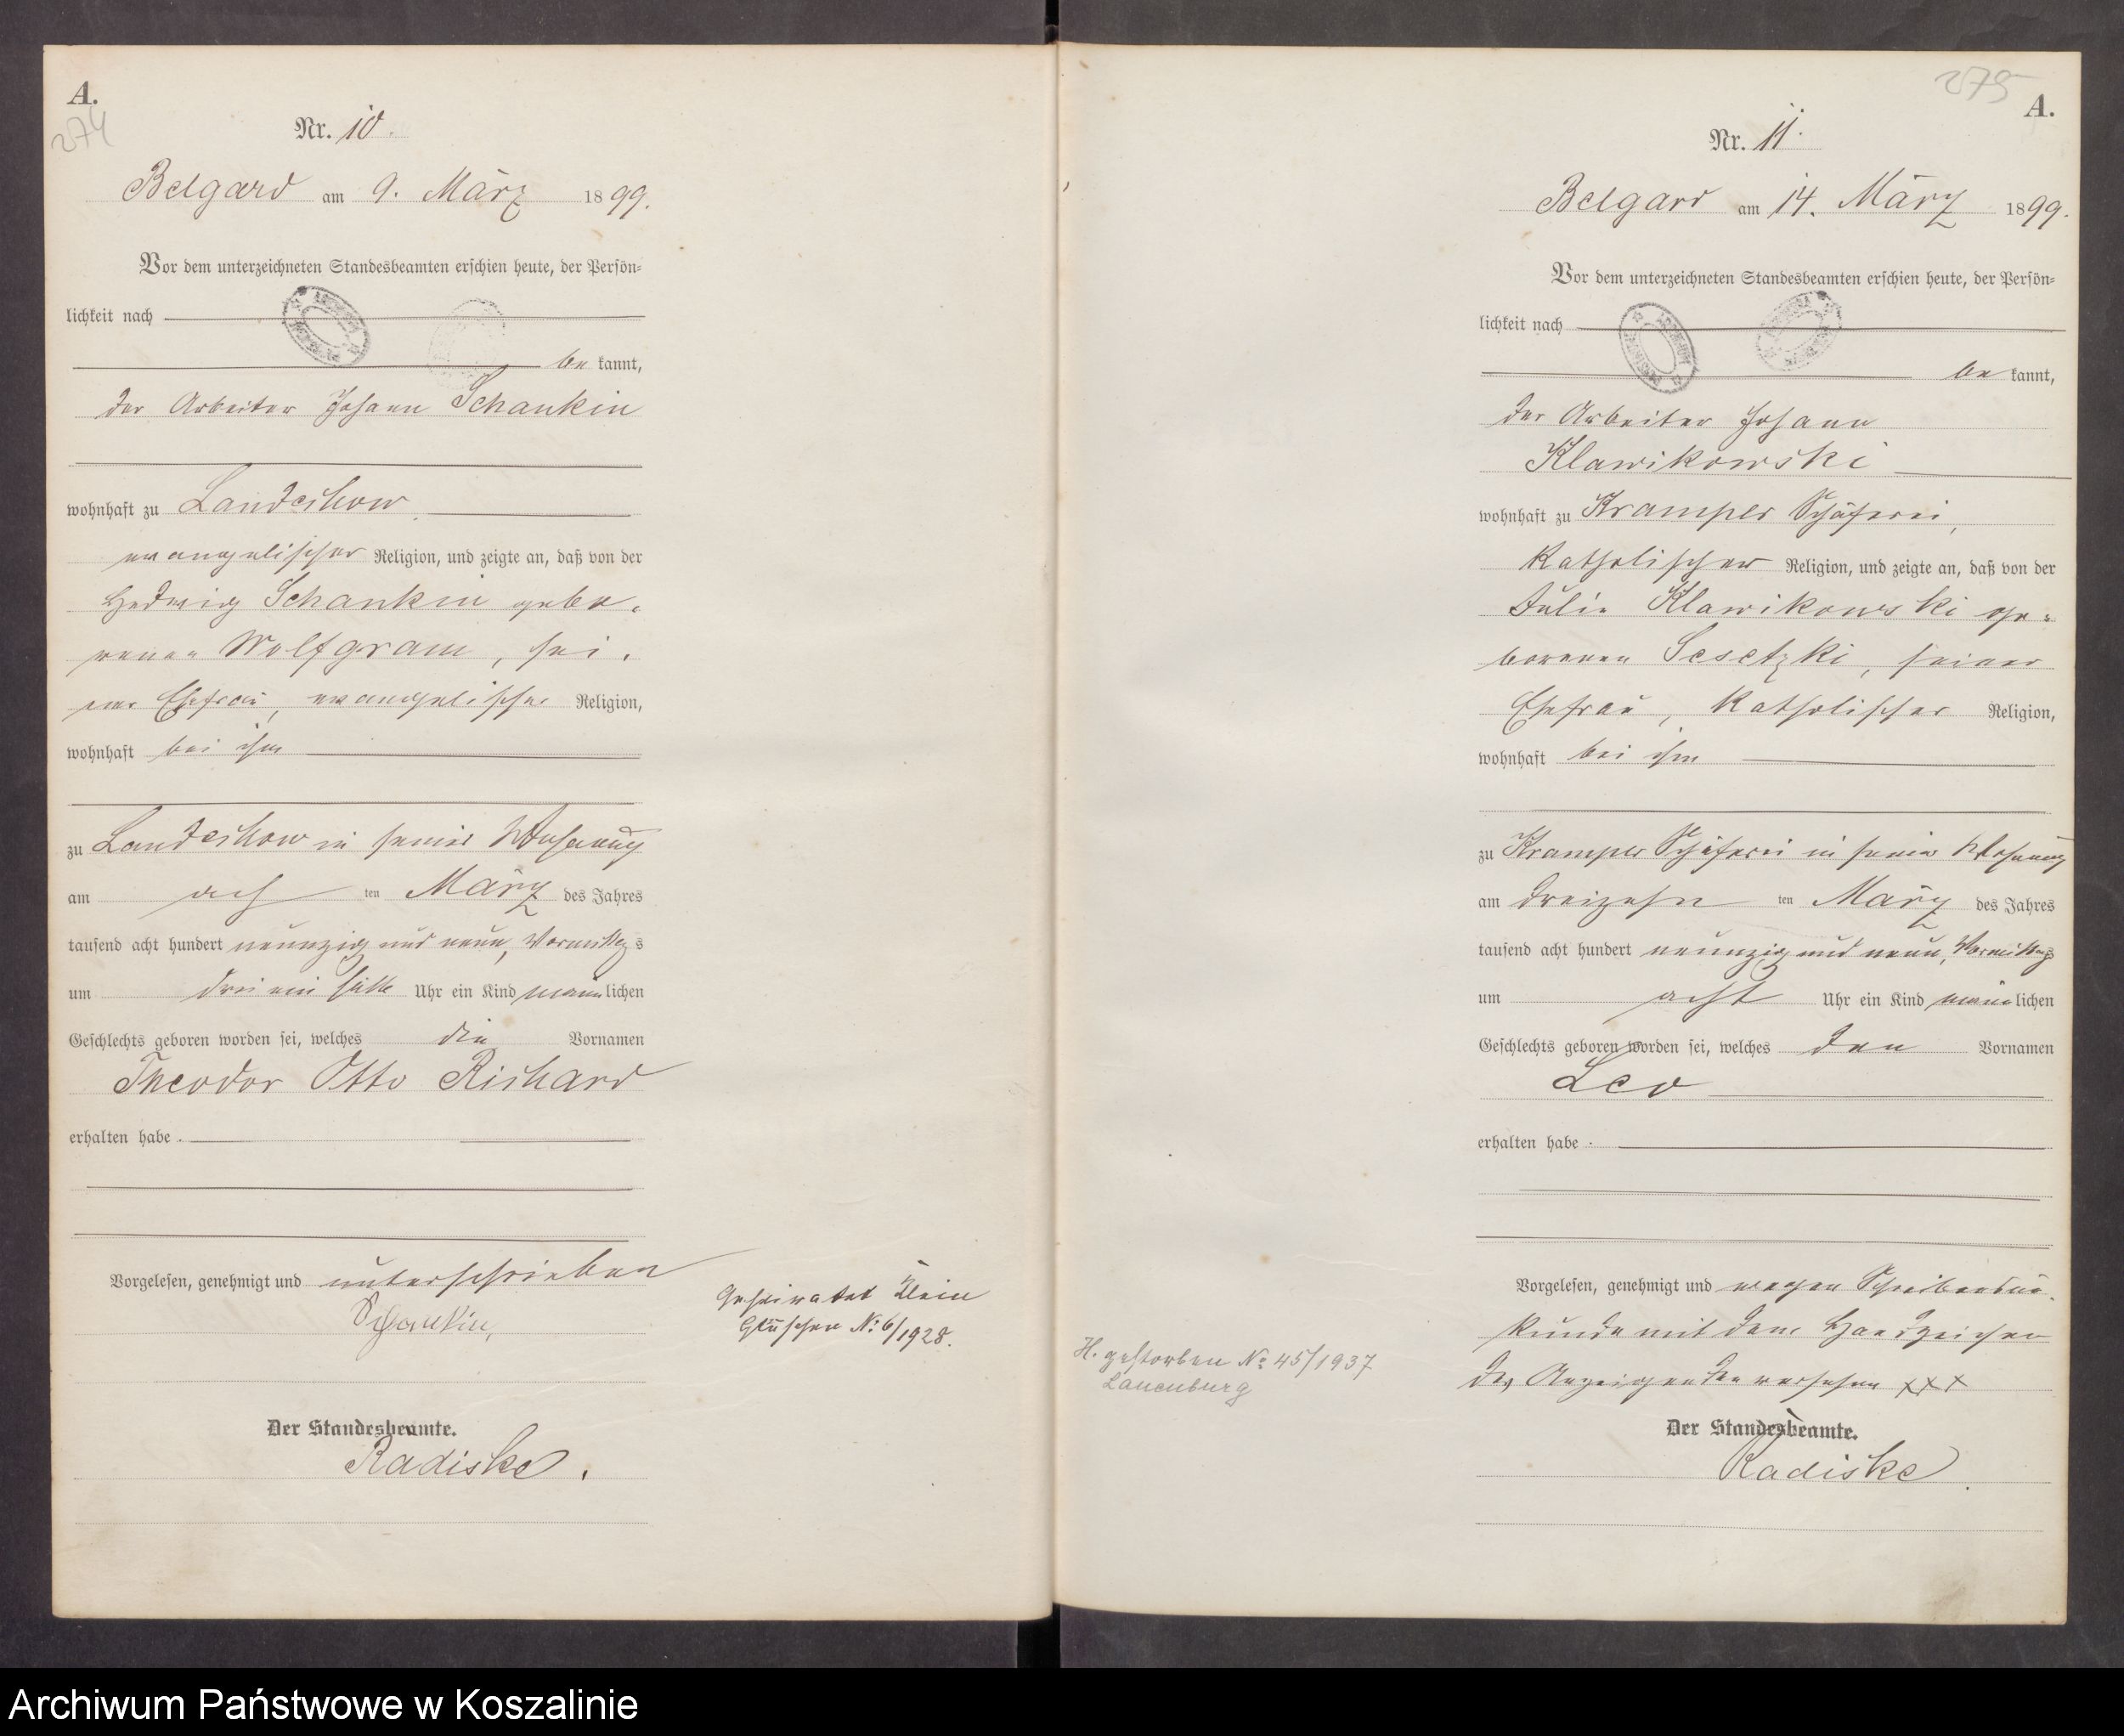 A.
274
Nr. 10.
Belgard am 9. März 1899.
Vor dem unterzeichneten Standesbeamten erschien heute, der Persön-
lichkeit nach
be kannt,
der Arbeiter Johann Schankin
wohnhaft zu Landechow
evangelischer Religion, und zeigte an, daß von der
Hedwig Schankin gebo-
renen Wolfgram, sei-
ner Ehefrau, evangelischer Religion,
wohnhaft bei ihm
zu Landechow in seiner Wohnung
am ach ten März des Jahres
tausend acht hundert neunzig und neun, Vormittags
um drei ein halb Uhr ein Kind männlichen
Geschlechts geboren worden sei, welches die Vornamen
Theodor Otto Richard
erhalten habe.
Vorgelesen, genehmigt und unterschrieben
Schankin,
Der Standesbeamte.
Radiske.
Geheiratet Klein
Gluschen No 6/1928.
275
A.
Nr. 11.
Belgard am 14. März 1899.
Vor dem unterzeichneten Standesbeamten erschien heute, der Persön-
lichkeit nach
be kannt,
der Arbeiter Johann
Klawikowski
wohnhaft zu Kramper Schäferei,
katholischer Religion, und zeigte an, daß von der
Julie Klawikowski ge-
borenen Sesetzki, seiner
Ehefrau, katholischer Religion,
wohnhaft bei ihm
zu Kramper Schäferei in seiner Wohnung
am dreizehn ten März des Jahres
tausend acht hundert neunzig und neun, Vormittags
um acht Uhr ein Kind männlichen
Geschlechts geboren worden sei, welches den Vornamen
Leo
erhalten habe.
Vorgelesen, genehmigt und wegen Schreibensun-
kunde mit dem Handzeichen
des Anzeigenden versehen xxx
Der Standesbeamte.
Radiske
H. gestorben No 45/1937
Lauenburg
Archiwum Państwowe w Koszalinie